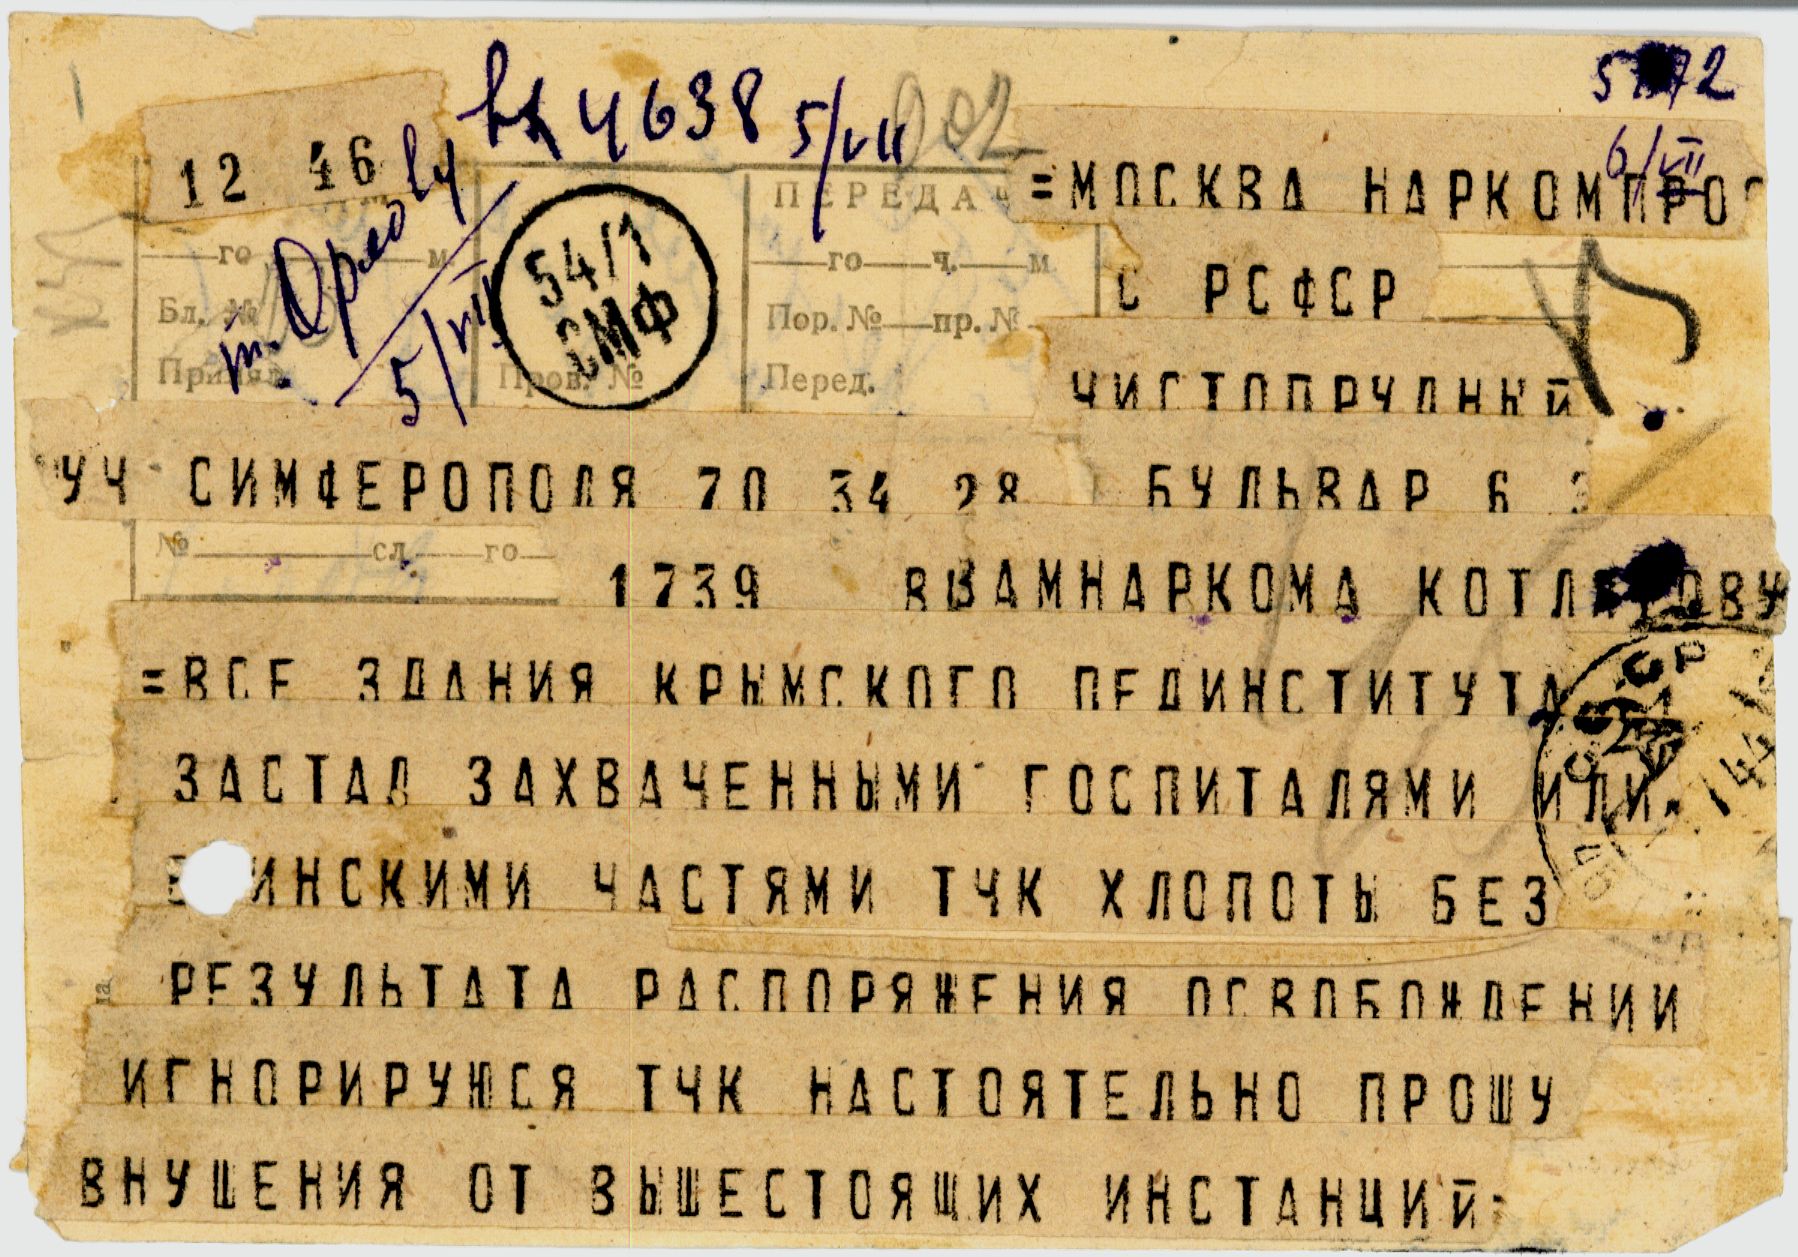 вх 4638 5/VII
5 72
6/VII
12 46
=МОСКВА НАРКОМПРОС
ПЕРЕДАЧ
го м
го ч. м
54/1
СМФ
С РСФСР
Бл. №
Пор. № пр. №
5/VII
Принял
Пров. №
Перед.
ЧИСТОПРУДНЫЙ
УЧ СИМФЕРОПОЛЯ 70 34 28 БУЛЬВАР 6
№ сл. го
1739 ЗАМНАРКОМА
=ВСЕ ЗДАНИЯ КРЫМСКОГО ПЕДИНСТИТУТА
ЗАСТАЛ ЗАХВАЧЕННЫМИ ГОСПИТАЛЯМИ ИЛИ
ИНСКИМИ ЧАСТЯМИ ТЧК ХЛОПОТЫ БЕЗ
РЕЗУЛЬТАТА РАСПОРЯЖЕНИЯ ОСВОБОЖДЕНИИ
ИГНОРИРУЮСЯ ТЧК НАСТОЯТЕЛЬНО ПРОШУ
ВНУШЕНИЯ ОТ ВЫШЕСТОЯЩИХ ИНСТАНЦИЙ=